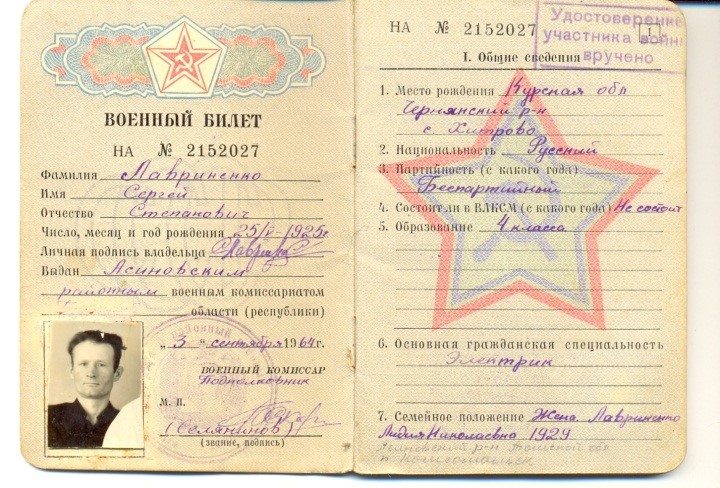 ВОЕННЫЙ БИЛЕТ
НА № 2152027
Фамилия Лавриненко
Имя Сергей
Отчество Степанович
Число, месяц и год рождения 25/V-1925г.
Личная подпись владельца
Выдан Асиновским
районным военным комиссариатом
области (республики)
„3" сентября 1964г.
ВОЕННЫЙ КОМИССАР
Подполковник
М. П.
(Селянинов)
(звание, подпись)
НА № 2152027
1
Удостоверение
участника войны
вручено
I. Общие сведения
1. Место рождения Курская обл
Чернянский р-н
с Хитрово
2. Национальность Русский
3. Партийность (с какого года)
Беспартийный
4. Состоит ли в ВЛКСМ (с какого года) Не состоит
5. Образование 4 класса
6. Основная гражданская специальность
Электрик
7. Семейное положение Жена Лавриненко
Лидия Николаевна 1929
Асиновский р-н Томской обл
п Комсомольск